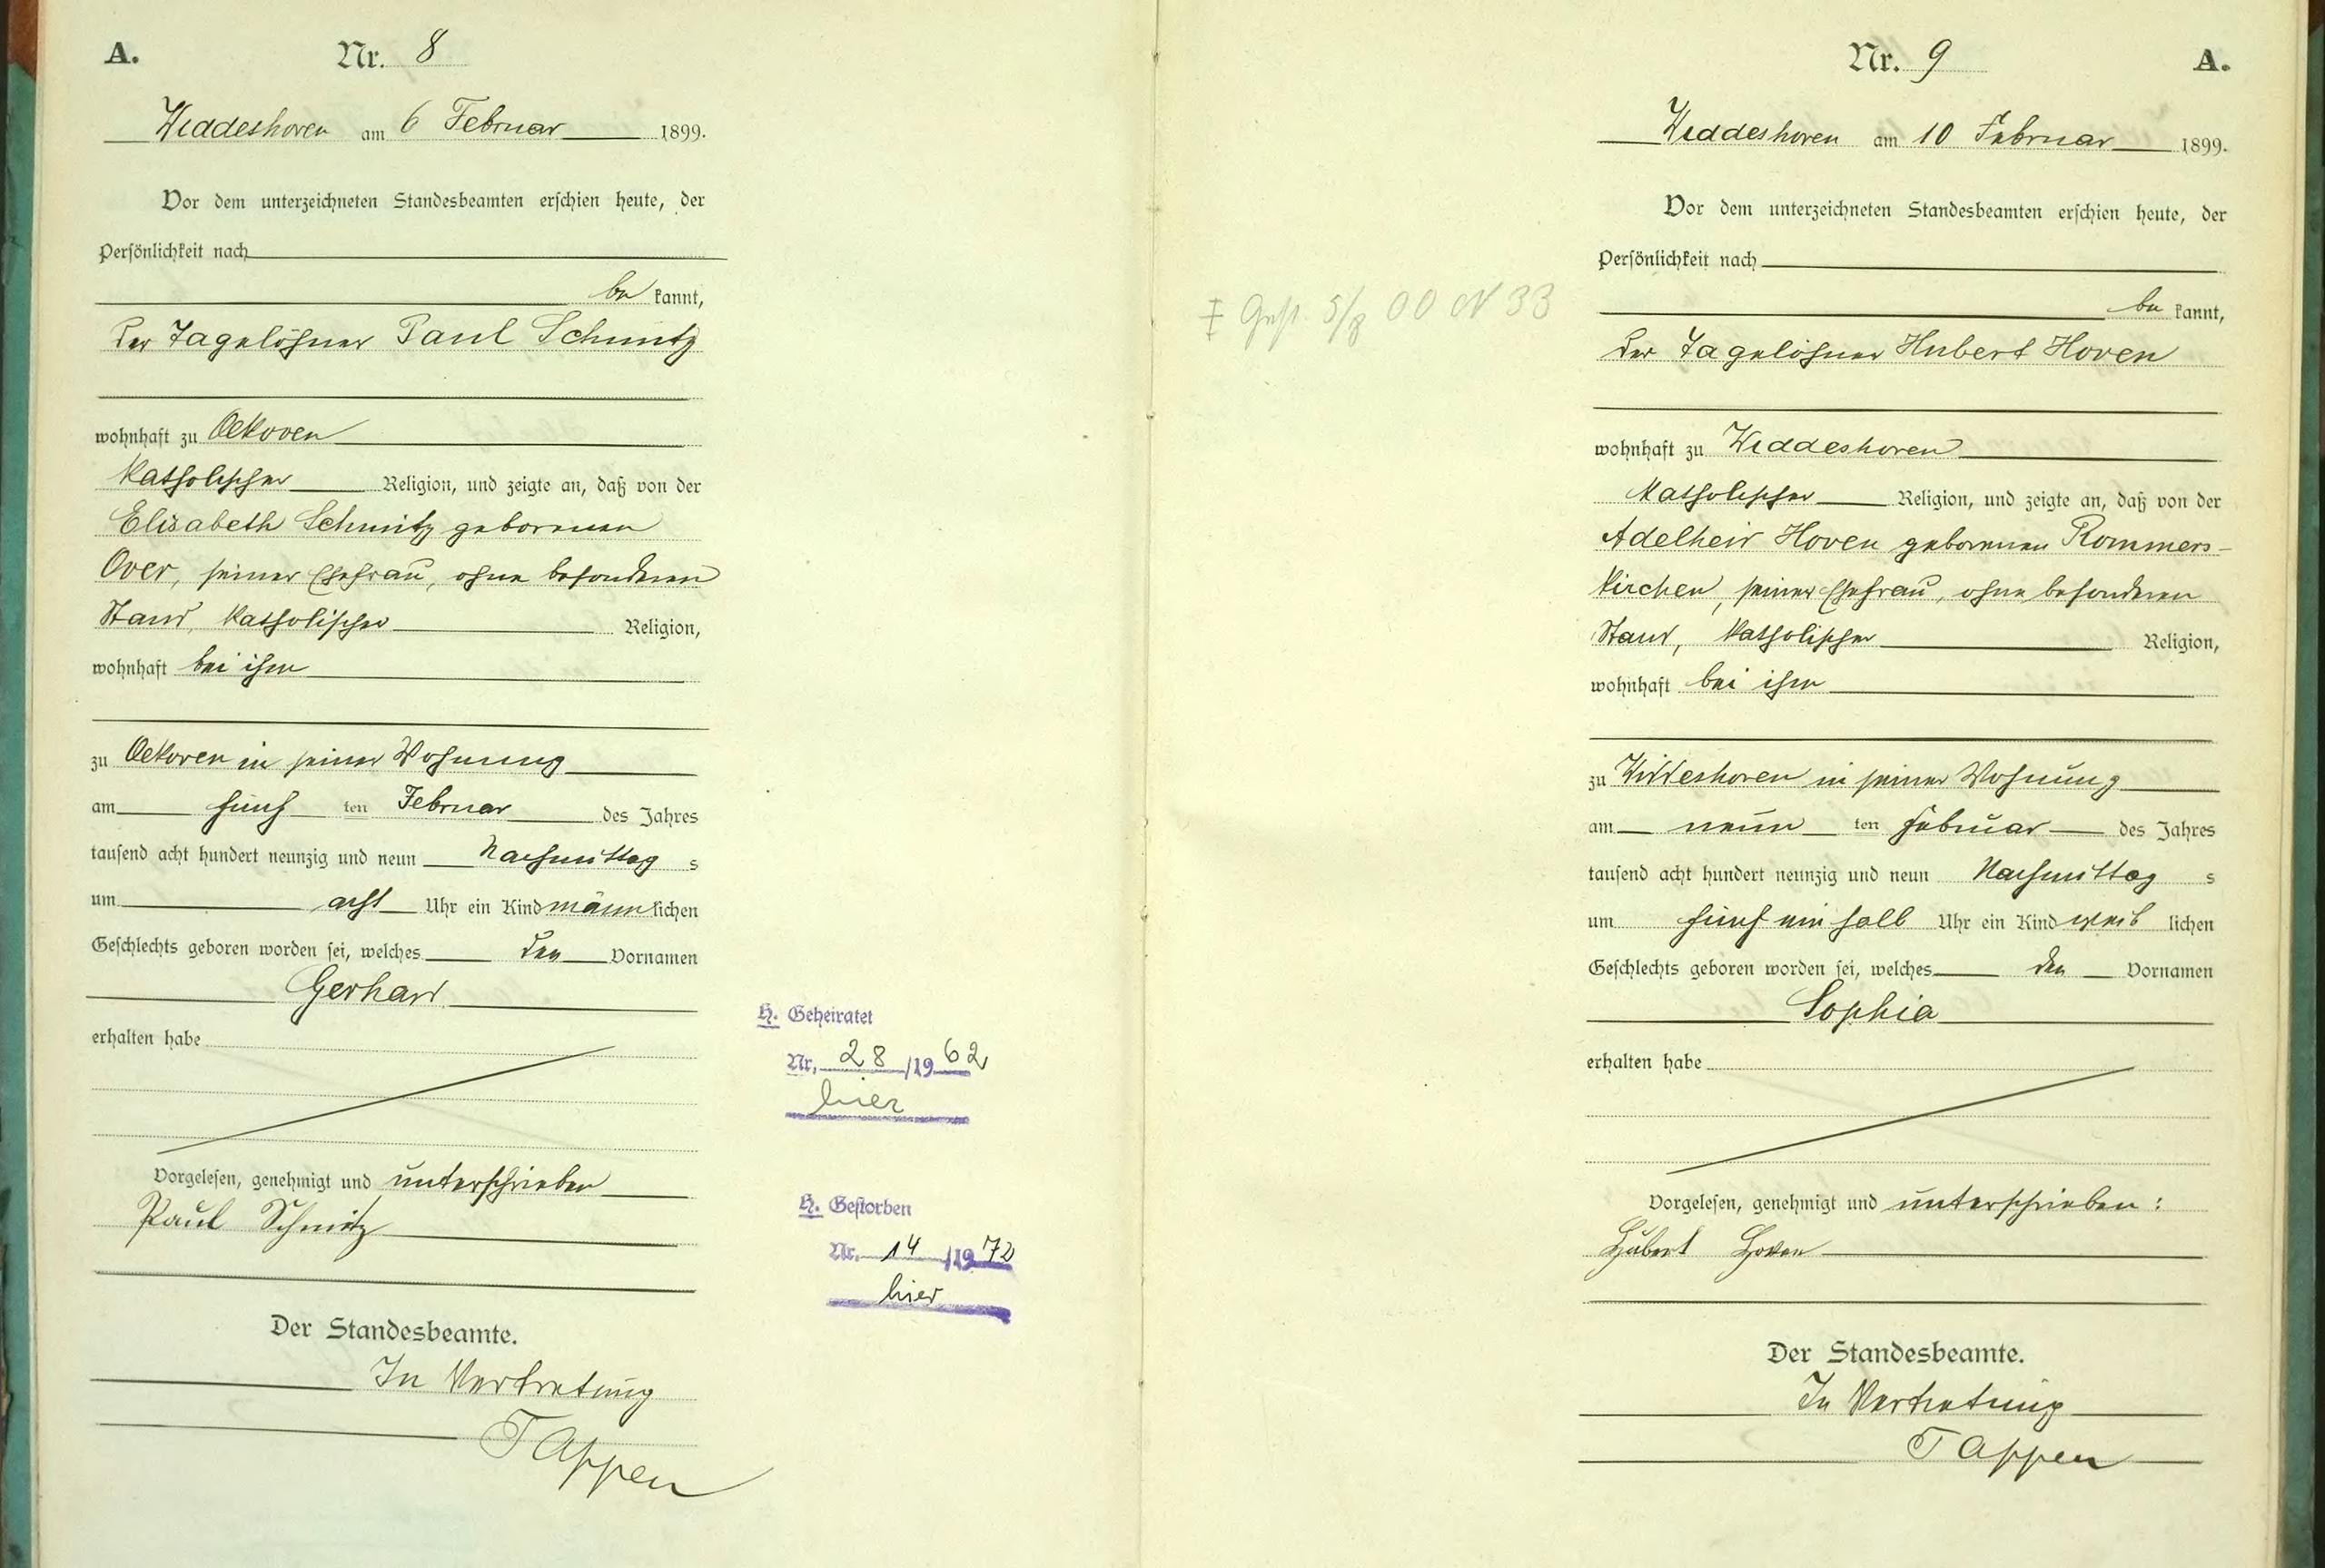 A. Nr. 8
Widdeshoven am 6 Februar 1899.
Vor dem unterzeichneten Standesbeamten erschien heute, der
Persönlichkeit nach
be kannt,
der Tagelöhner Paul Schmitz
wohnhaft zu Oekoven
katholischer Religion, und zeigte an, daß von der
Elisabeth Schmitz geborenen
Over, seiner Ehefrau, ohne besonderen
Stand, katholischer Religion,
wohnhaft bei ihm
zu Oekoven in seiner Wohnung
am fünf ten Februar des Jahres
tausend acht hundert neunzig und neun Nachmittag s
um acht Uhr ein Kind männlichen
Geschlechts geboren worden sei, welches den Vornamen
Gerhard
erhalten habe
Vorgelesen, genehmigt und unterschrieben
Paul Schmitz
Der Standesbeamte.
In Vertretung
Tappen
H. Geheiratet
Nr. 28 /1962
hier
H. Gestorben
Nr. 14 /1972
hier
Nr. 9 A.
Widdeshoven am 10 Februar 1899.
Vor dem unterzeichneten Standesbeamten erschien heute, der
Persönlichkeit nach
be kannt,
der Tagelöhner Hubert Hoven
wohnhaft zu Widdeshoven
katholischer Religion, und zeigte an, daß von der
Adelheid Hoven geborenen Rommers-
kirchen, seiner Ehefrau, ohne besonderen
Stand, katholischer Religion,
wohnhaft bei ihm
zu Widdeshoven in seiner Wohnung
am neun ten Februar des Jahres
tausend acht hundert neunzig und neun Nachmittag s
um fünf ein halb Uhr ein Kind weib lichen
Geschlechts geboren worden sei, welches den Vornamen
Sophia
erhalten habe
Vorgelesen, genehmigt und unterschrieben:
Hubert Hoven
Der Standesbeamte.
In Vertretung
Tappen
Gest. 5/8 00 N 33